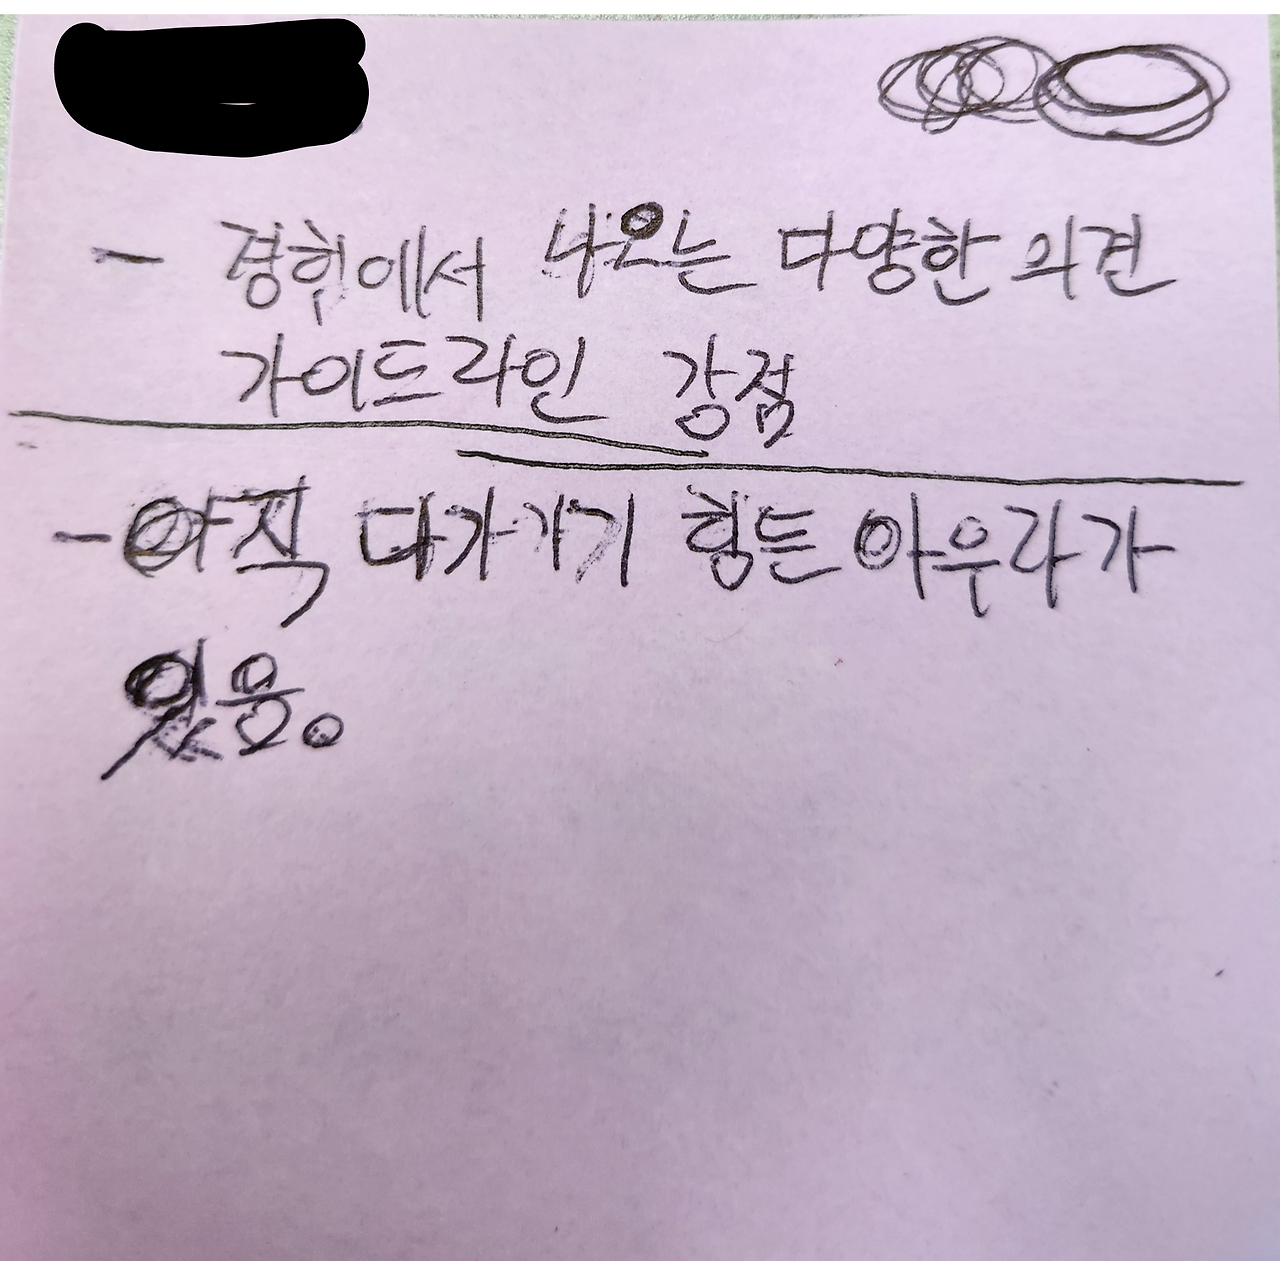 - 경험에서 나오는 다양한 의견
가이드라인 강점
- 아직 다가가기 힘든 아우라가
있음。